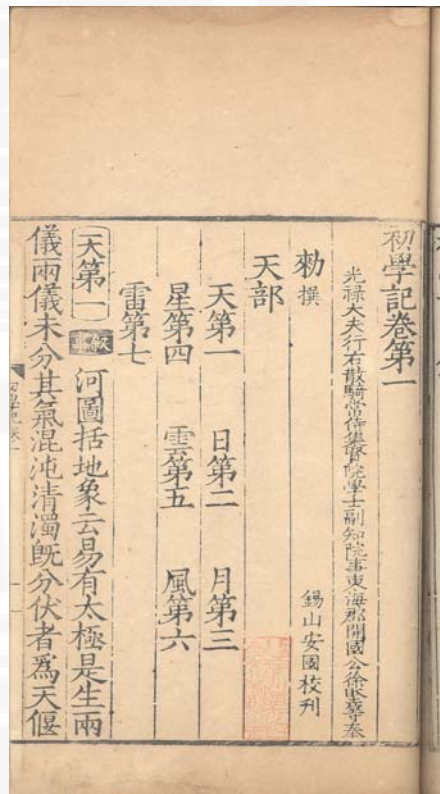 初學記卷第一
光祿大夫行右散騎常侍集賢院學士副知院事東海郡開國公徐堅等奉
勑撰 錫山安國校刊
天部
天第一 日第二 月第三
星第四 雲第五 風第六
雷第七
天第一 敘事 河圖括地象云易有太極是生兩
儀兩儀未分其氣混沌清濁既分伏者爲天偃